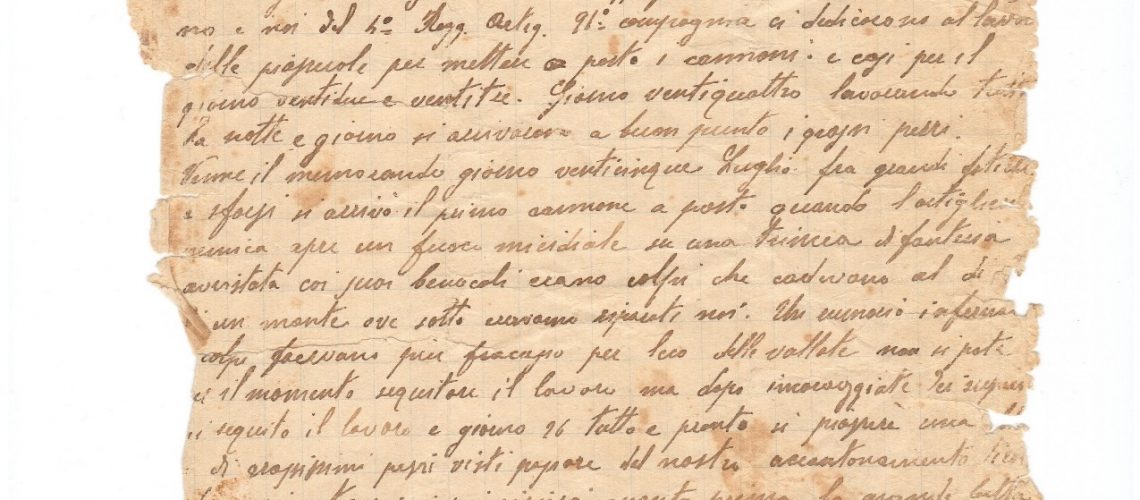 no e noi del 4º Regg. Artig. 91ª compagnia ci dedicorono al lavoro
delle piazzuole per mettere a posto i cannoni. e così per il
giorno ventidue e ventitre. Giorno ventiquattro lavorando tutta
la notte e giorno si arrivarono a buon punto i grossi pezzi.
Venne il memorando giorno venticinque Luglio fra grandi fatiche
e sforzi si arrivò il primo cannone a posto quando l'artiglieria
nemica apre un fuoco micidiale su una trincea di fanteria
avvistata coi suoi benocoli erano colpi che cadevano al di
un monte ove sotto eravamo riparati noi. Un rumorio infernale
colpi facevano più fracasso per leco delle vallate non si pote
il momento seguitare il lavoro ma dopo incoraggiate
si seguito il lavoro e giorno 26 tutto e pronto si
di grossissimi pezzi visti passare del nostro accantonamento
la grande